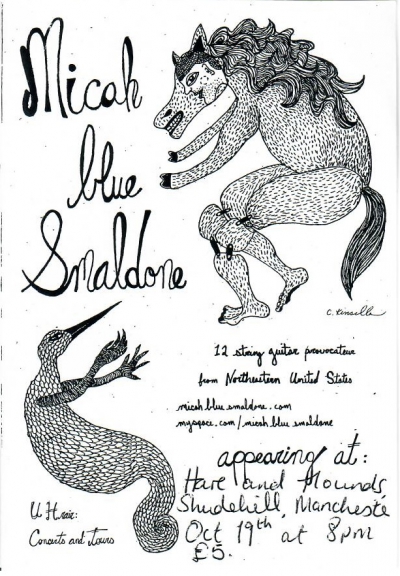 Micah
blue
Smaldone
12 string guitar provocateur
from Northeastern United States
micah blue smaldone.com
myspace.com/micah blue smaldone
appearing at:
Hare and Hounds,
Shudehill, Mancheste
Oct 19th at 8pm
£5.
Concerts and Tours